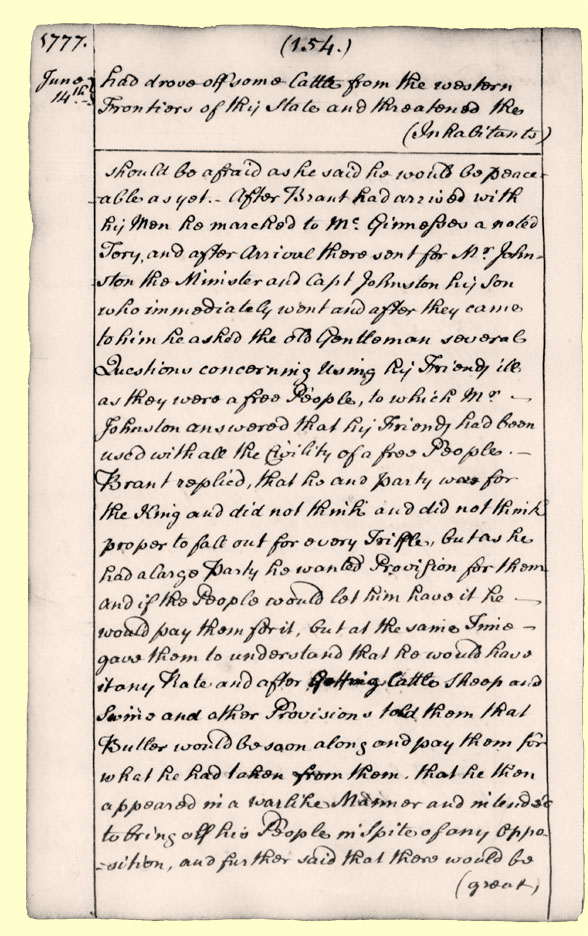 1777.
(154.)
June 14th.
had drove off some Cattle from the western
Frontiers of this State and threatened the
(Inhabitants)
should be afraid as he said he would be peace-
-able as yet.- After Brant had arrived with
his Men he marched to Mc. Ginnesses a noted
Tory, and after Arrival there sent for Mr. John-
ston the Minister and Capt Johnston his Son
who immediately went and after they came
to him he asked the old Gentleman several
Questions concerning Using his Friends ill
as they were a free People, to which Mr. —
Johnston answered that his Friends had been
used with all the Civility of a free People. —
Brant replied, that he and party was for
the King and did not think and did not think
proper to fall out for every Triffle, but as he
had a large Party he wanted Provision for them
and if the People would let him have it he —
would pay them for it, but at the same Time —
gave them to understand that he would have
it any Rate and after Getting Cattle Sheep and
Swine and other Provisions told them that
Butler would be soon along and pay them for
what he had taken from them. that he then
appeared in a warlike Manner and intended
to bring off his People in Spite of any Oppo-
-sition, and further said that there would be
(great)